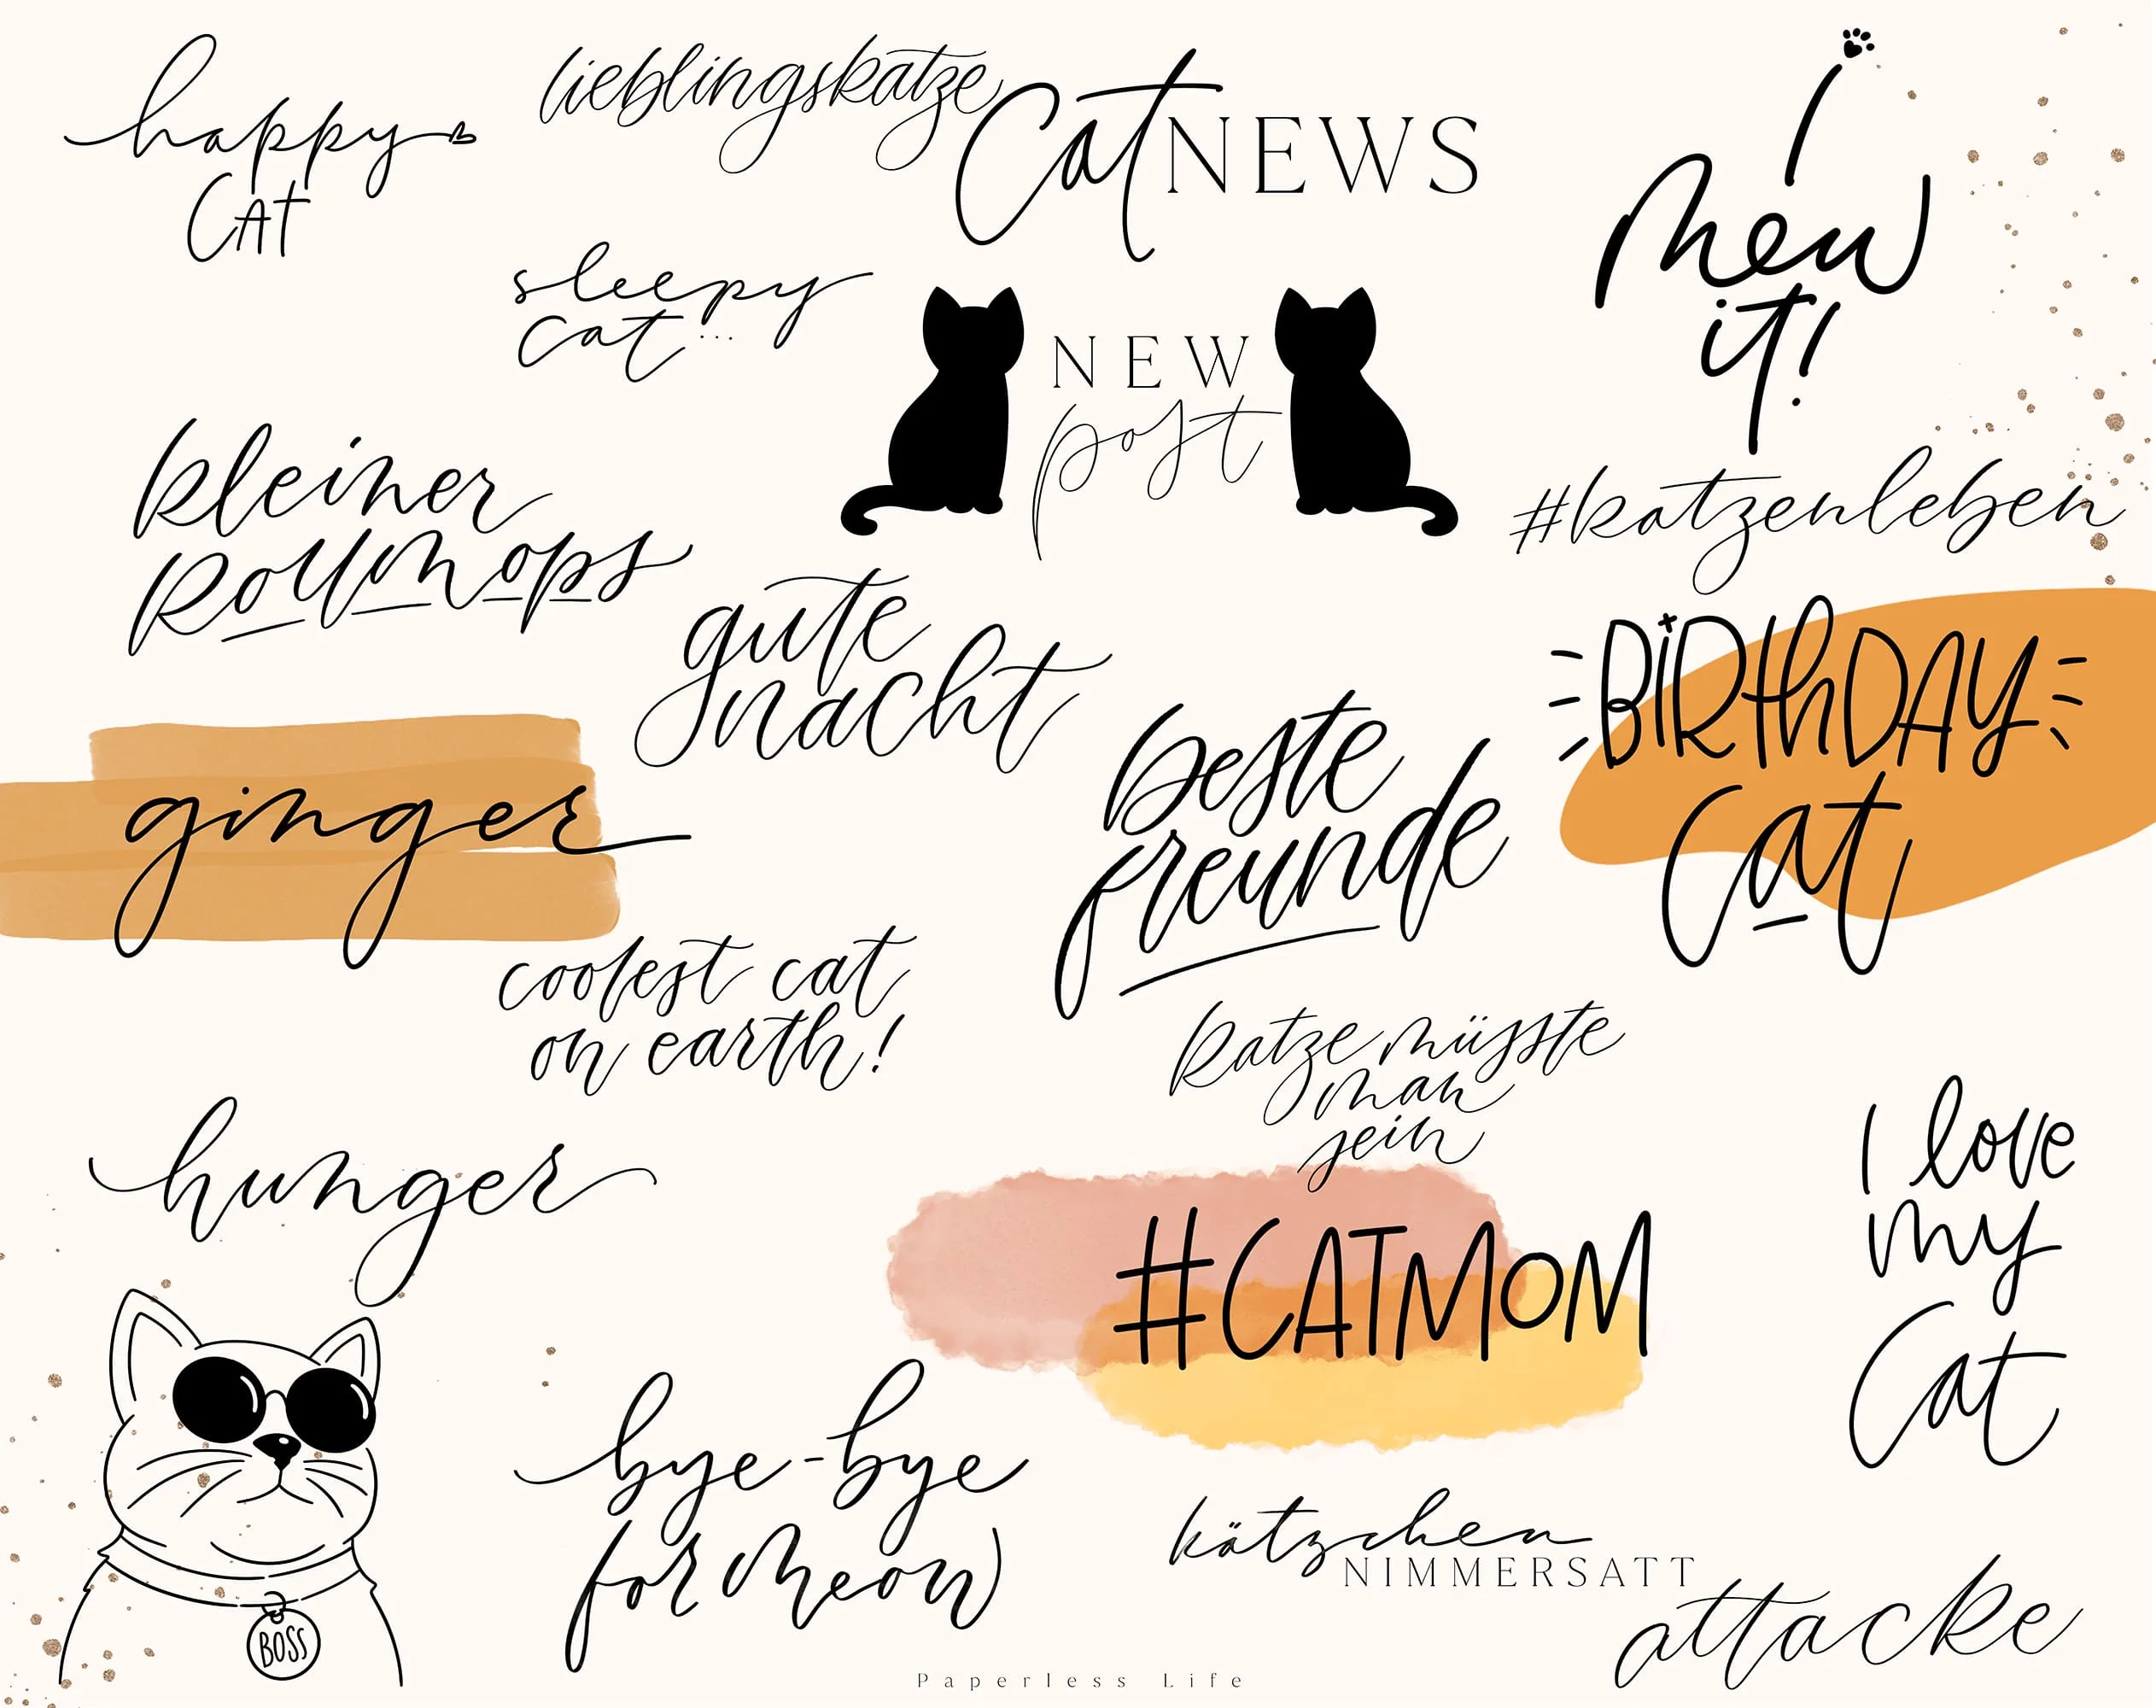 happy
CAT
lieblingskatze
Cat NEWS
I
mew
it!
sleepy
cat...
NEW
post
kleiner
Rollmops
#katzenleben
gute
nacht
BIRTHDAY
Cat
ginger
beste
freunde
coolest cat
on earth!
Katze müsste
man
sein
hunger
I love
my
Cat
#CATMOM
bye-bye
for meow
kätzchen
NIMMERSATT
attacke
BOSS
Paperless Life